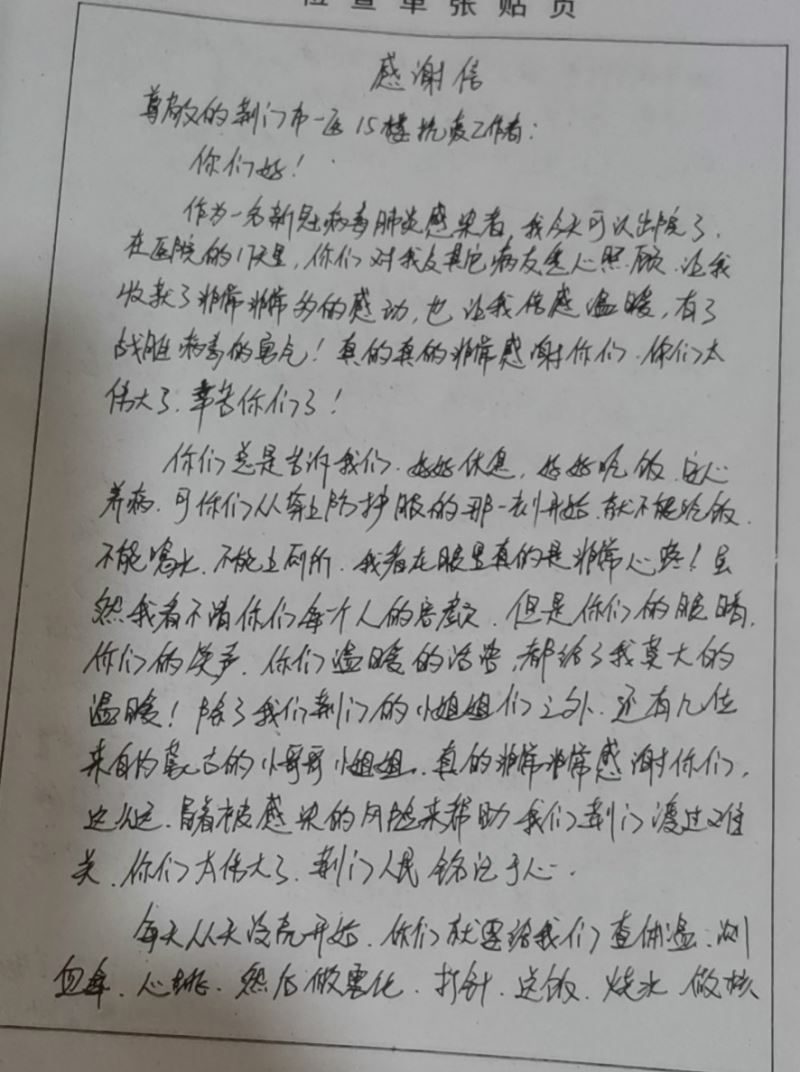 检查单张贴页
感谢信
尊敬的荆门市一医15楼抗疫工作者：
你们好！
作为一名新冠病毒肺炎感染者，我今天可以出院了，
在医院的17天里，你们对我及其它病友悉心照顾，让我
收获了非常非常多的感动，也让我倍感温暖，有了
战胜病毒的勇气！真的真的非常感谢你们，你们太
伟大了，辛苦你们了！
你们总是告诉我们，好好休息，好好吃饭，安心
养病，可你们从穿上防护服的那一刻开始，就不能吃饭，
不能喝水，不能上厕所，我看在眼里真的是非常心疼！虽
然我看不清你们每个人的容颜，但是你们的眼睛，
你们的笑声，你们温暖的话语，都给了我莫大的
温暖！除了我们荆门的小姐姐们之外，还有几位
来自内蒙古的小哥哥小姐姐，真的非常非常感谢你们，
这么远，冒着被感染的风险来帮助我们荆门渡过难
关，你们太伟大了，荆门人民铭记于心。
每天从天没亮开始，你们就要给我们查体温，测
血氧，心跳，然后做雾化，打针，送饭，烧水，做核